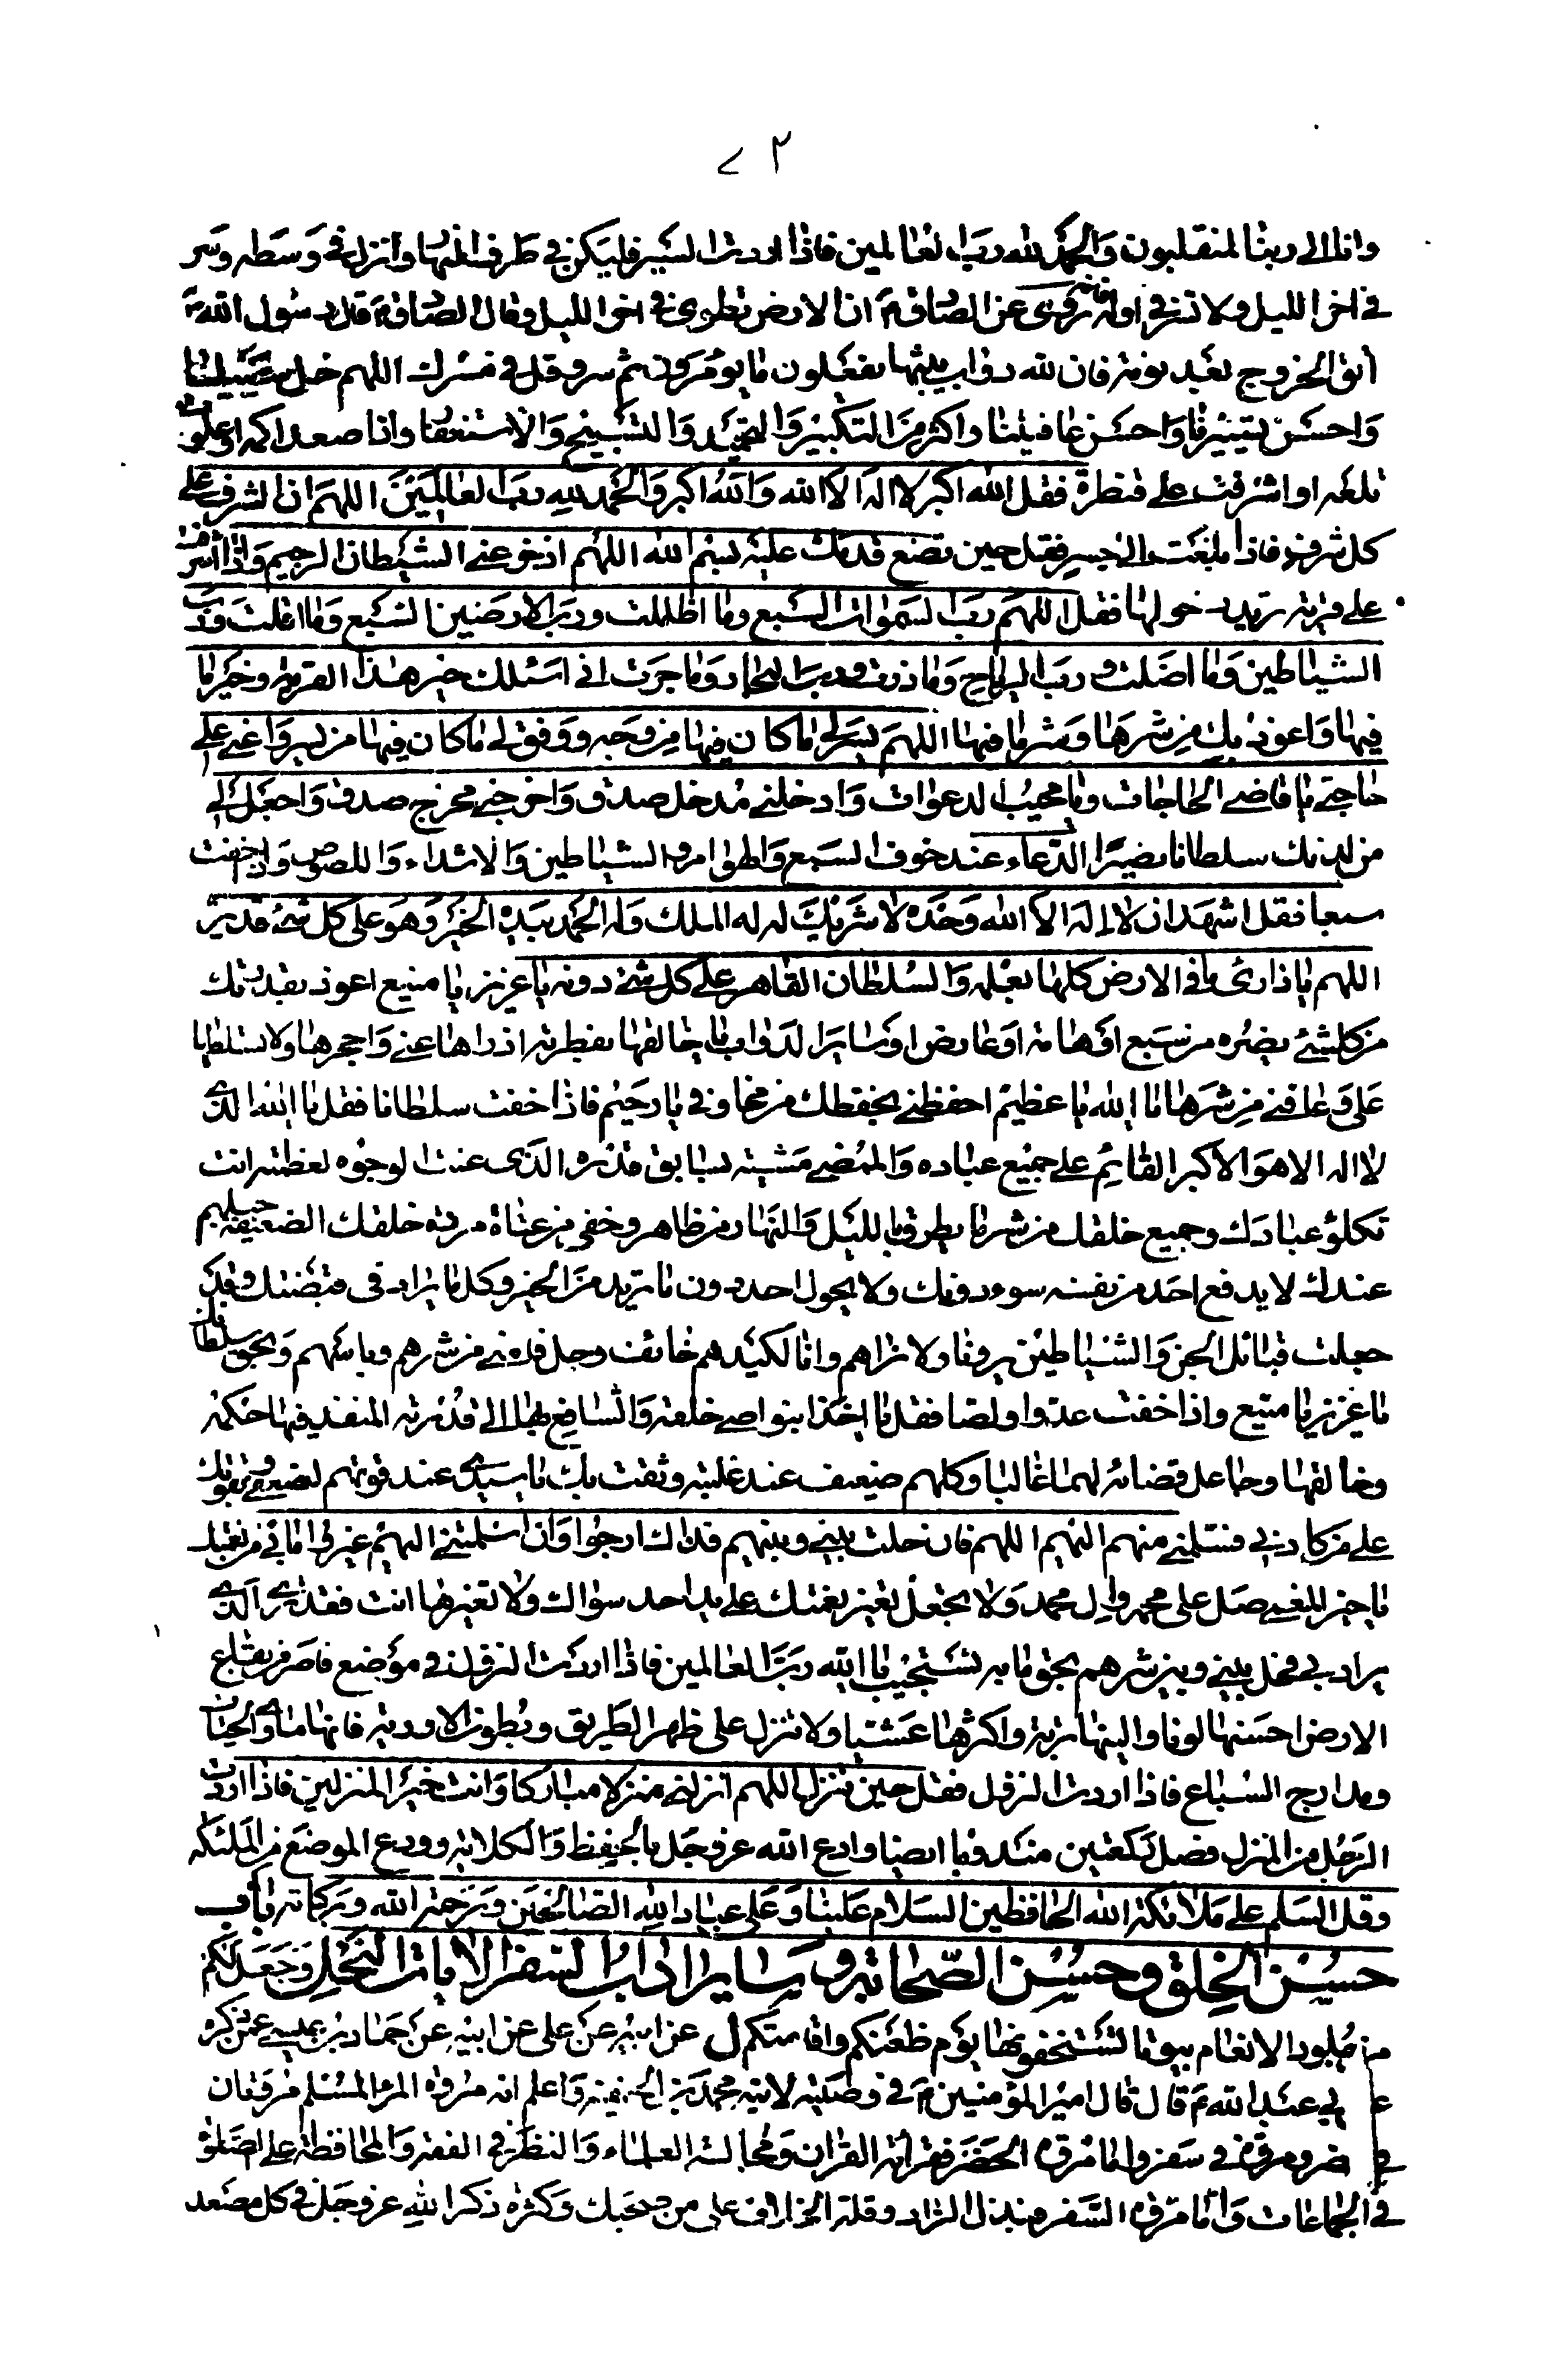 ٧٢
وانا الى ربنا لمنقلبون وَالحَمدُ لله ربّ العالمين فاذا اردت السَير فليكن في طرفى النهار وانزل في وَسَطه وَسر
في اخر الليل ولا تسر في اوله فانه روى عن الصادق ع ان الارض تطوى في اخر الليل وقال الصّادق ع قال رسول الله ص
اتق الخروج بعد نومة فان لله دوابّ يبثها يفعلون ما يؤمرون ثم سر وقل في مسيرك اللهم خل سبيلنا
وَاحسَن تسييرنا وَاحسَن عافيتنا واكثر من التكبير وَالتحميد وَالتَسبيح وَالاستغفار واذا صعدت اكمه او علوت
تلعه او اشرفت على قنطرة فقل الله اكبر لا اله الا الله وَالله اكبر وَالحَمد لله ربّ العالمين اللهمّ ان الشرف على
كل شرف فاذا بلغت الى جسر فقل حين تضع قدمك عليه بسم الله اللهم ادحر عنى الشيطان الرجيم وَاذا اشرفت
على قرية تريد دخولها فقل اللهمّ ربّ السموات السبع وما اظللت وربّ الارضين السَبع وَما اقلت وَربّ
الشياطين وَما اضلت وربّ الرياح وَما ذرت وربّ البحار وَما جرت انى اسئلك خير هذا القرية وخير ما
فيها وَاعوذ بك من شرها وَشر ما فيها اللهم يسر لى ما كان فيها من وجه ووفق لى ما كان فيها من يسر وَاعنى على
حاجتى يا قاضى الحاجات ويا مجيب الدعوات وَادخلنى مُدخل صدق وَاخرجنى مخرج صدق وَاجعَل لى
من لدنك سلطانا نصيرًا الدّعاء عند خوف السَبع وَالهوام والشياطين وَالاشداء وَاللصوص وَاذا خفت
سبعا فقل اشهد ان لا اله الا الله وَحدَه لا شريك له له الملك وَله الحَمد بيده الخير وَهوَ على كل شئ قدير
اللهم يا ذارئ ما في الارض كلها بعلمه وَالسُلطان القاهر على كل شئ دونه يا عزيز يا منيع اعوذ بقدرتك
من كل شئ يضره من سبع او هامة او عارض او سَاير الدَواب يا خالقها بفطرته ادراها عنى وَاحجرها ولا تسلطها
عَلى وَعافنى من شرها يا الله يا عظيم احفظنى بحفظك من مخاوفى يا رحيم فاذا خفت سلطانا فقل يا الله الذى
لا اله الا هوَ الاكبر القائم على جميع عباده وَالممضى مَشيته بسابق قدره الذى عنت الوجوه لعظمته انت
تكلؤ عبادك وجميع خلقك من شر ما يطرق بالليل وَالنهار من ظاهر وخفى من عتاة مردة خلقك الضعيفة حيلهم
عندك لا يدفع احَد من نفسه سوء دونك ولا يحول احد دون ما تريد من الخير وكل ما يراد
جعلت قبائل الجن وَالشياطين يرونا ولا نراهم وانا لكيدهم خائف وجل فامنى من شرهم وباسهم وَبحق سلطانك
يا عزيز يا منيع واذا خفت عدوا او لصا فقل يا اخذا بنواصى خلقه وَالسافع بها الى قدرته المنفذ فيها حكمه
وخالقها وجاعل قضائه لهما غالبا وكلهم ضعيف عند غلبته وثقت بك يا سيدى عند قوتهم لضعفى وبقوتك
على من كادنى فسلمنى منهم اللهم فان حلت بينى وبينهم فذاك ارجوا وَان اسلمتنى اليهم غير
يا خير المنعمين صَل على محمد وال محمد وَلا تجعَل تغير نعمتك على يد احد سواك ولا تغيرها انت فقد ترى الذى
يراد بى فحل بينى وبين شرهم بحق ما به تستجيب يا الله رَبّ العالمين فاذا اردت النزول في موضع فاصر من بقاع
الارض احسَنها لونا والينها تربة واكثرها عشبا ولا تنزل على ظهر الطريق وبطون الاودية فانها مَاوى الحيات
ومدارج السباع فاذا اردت النزول فقل حين تنزل اللهم انزلنى منزلا مباركا وَانت خيَر المنزلين فاذا اردت
الرَحيل من المنزل فصل ركعتين وادع الله عز وجَل بالحفظ وَالكلائة وودع الموضع من الملئكه
وقل السلم على مَلائكة الله الحافظين السَلام علينا وَعَلى عباد الله الصَالحين وَرَحمة الله وبركاته باب
حسُن الخلق وحسُن الصّحابة وسَاير اداب السفر الايات النّحل وَجَعَل لكُم
من جلود الانعام بيوتا تستخفونها يوم ظعنكم واقامتكم ل عن ابيه عَن على عن ابيه عن حَماد بن عيسى عمن ذكره
عن ابى عبد الله ع قال قال امير المؤمنين ع في وصَيته لابنه محمد بن الحنفية وَاعلم ان مروة المرء المسلم مروتان
مروة في حضر ومروة في سفر واما مروة الحضَر فقرائة القران وَمجالسة العلماء وَالنظر في الفقه وَالمحافظة على الصَلوة
في الجماعات وَاما مروة السَّفر فبذل الزاد وقلة الخلاف على من صحبك وَكثرة ذكر الله عز وجَل في كل مصعد